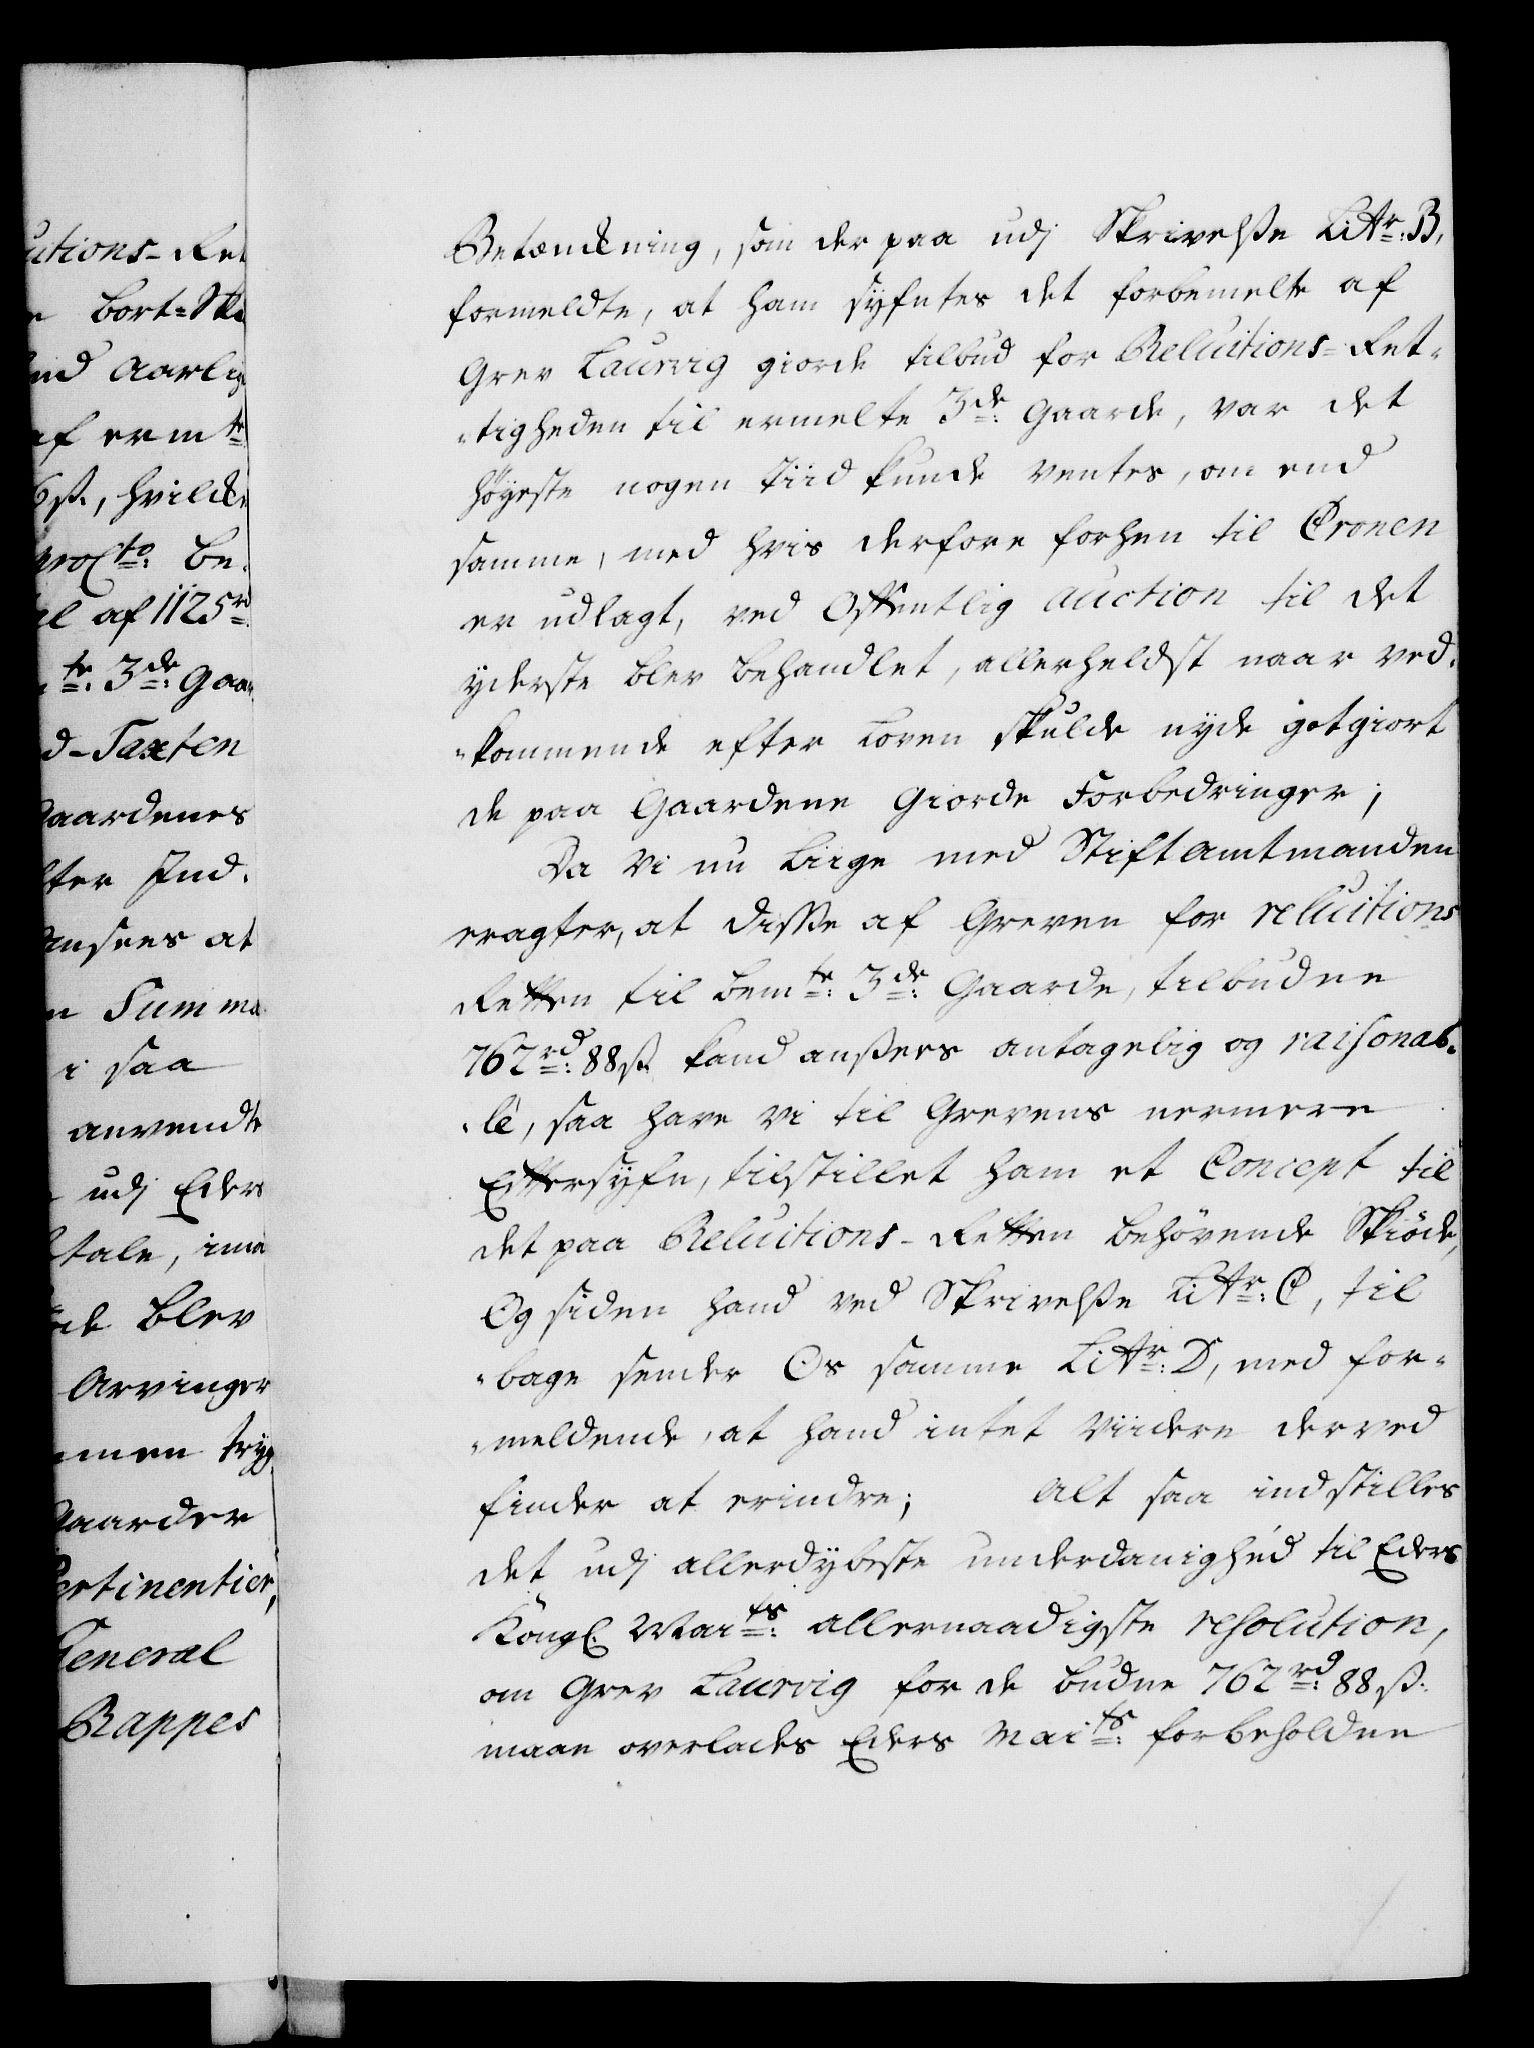 utions-Ret
bort-Ske
ind Aarlig
af ermte
6ß, hvilcke
proCto: be-
el af 1125rd
te: 3de: Gaa-
d-Taxten
Gaardenes
fter Ind-
ansees at
n Summa
i saa
anvendte
udj Eders
tale, ima
de blev
Arvinger
men tryg
Gaarder
Pertinentier,
General
Rappes
Betænckning, som der paa udj Skrivelsse Littr: B,
formeldte, at ham syfntes det forbemelte af
Grev Laurvig giorde tilbud for Reluitions-Ret-
-tigheden til ermelte 3de: Gaarde, var det
höyeste nogen tiid kunde ventes, om end
samme, med hvis derfore forhen til Cronen
er udlagt, ved Offentlig auction til det
yderste blev behandlet, allerheldst naar ved-
-kommende efter Loven skulde nyde gotgiort
de paa Gaardene Giorde Forbedringer;
Da Vi nu Liige med Stiftamtmanden
eragter, at disse af Greven for reluitions
Retten til bemte: 3de: Gaarde, tilbudne
762rd: 88ß kand ansees antagelig og raisonab-
-le, saa have Vi til Grevens nermere
Eftersyfn, tilstillet ham et Concept til
det paa Reluitions-Retten behövende Skiöde,
Og siden hand ved Skrivelsse Littr: C, til
-bage sender Os samme Littr: D, med for-
-meldende, at hand intet Viidere derved
finder at erindre; Alt saa indstilles
det udj allerdybeste underdanighed til Eders
Kongl. Maits: allernaadigste resolution,
om Grev Laurvig for de budne 762rd: 88ß.
maae overlades Eders Maits: forbeholdne